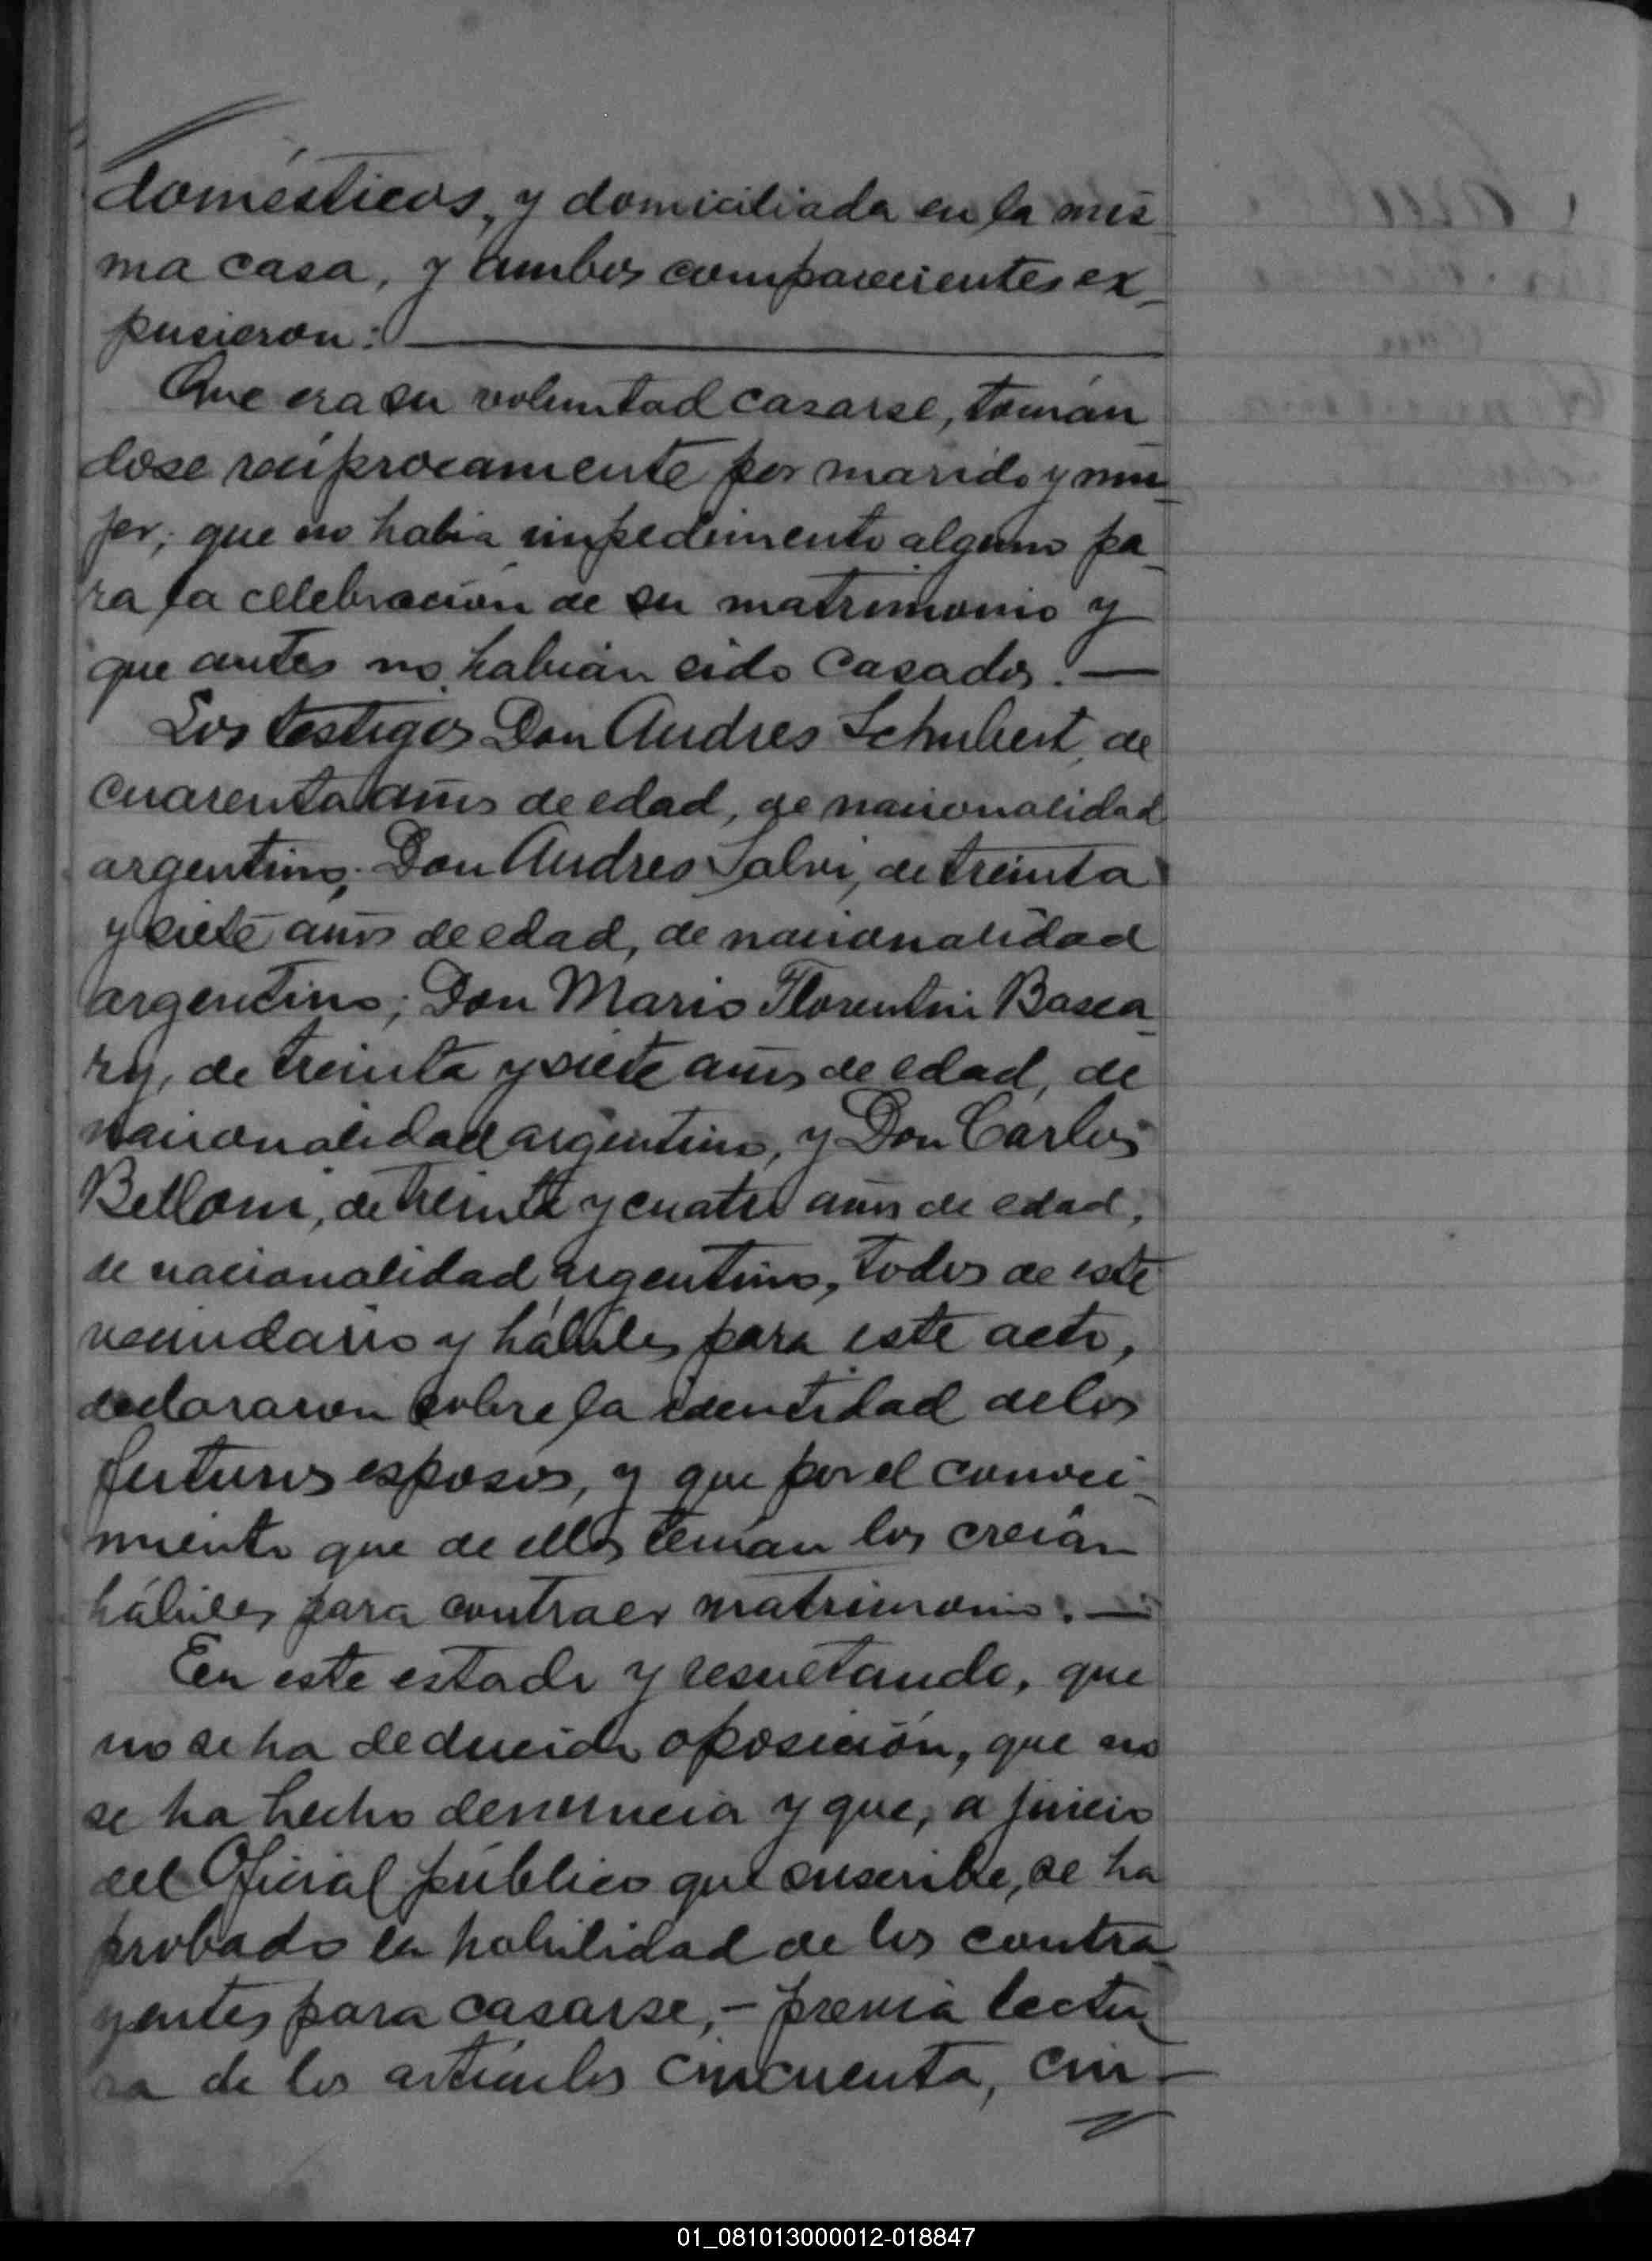 domésticos, y domiciliada en la mis
ma casa, y ambos comparecientes ex_
pusieron:
Que era su voluntad casarse, tomán_
dose recíprocamente por marido y mu_
jer; que no había impedimento alguno pa_
ra la celebración de su matrimonio y
que antes no habían sido casados.—
Los testigos Don Andres Schubert, de
cuarenta años de edad, de nacionalidad
argentino; Don Andres Salvi, de treinta
y siete años de edad, de nacionalidad
argentino; Don Mario Florentin Basca_
ry, de treinta y siete años de edad, de
nacionalidad argentino, y Don Carlos
Belloni, de treinta y cuatro años de edad,
de nacionalidad argentino, todos de este
vecindario y hábiles para este acto,
declararon sobre la identidad de los
futuros esposos, y que por el conoci_
miento que de ellos tenían los creían
hábiles para contraer matrimonio.—
En este estado y resultando, que
no se ha deducido oposición, que no
se ha hecho denuncia y que, a juicio
del Oficial público que suscribe, se ha
probado la habilidad de los contra_
yentes para casarse,— previa lectu_
ra de los artículos cincuenta, cin_
01_081013000012-018847